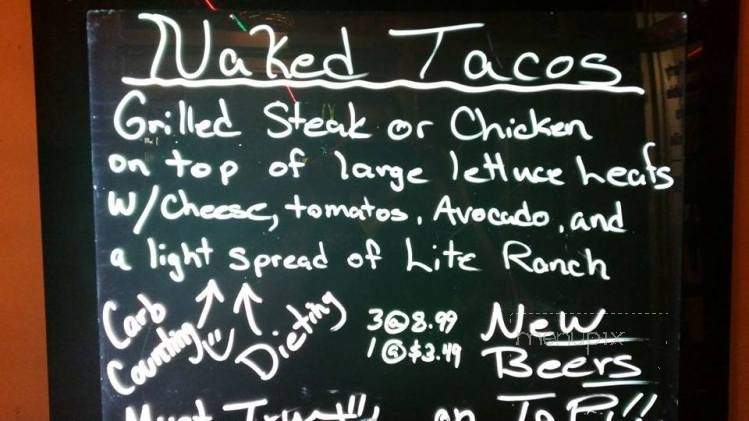 Naked Tacos
Grilled Steak or Chicken
on top of large lettuce leafs
w/cheese, tomatos, Avocado, and
a light spread of Lite Ranch
Carb
Counting
Dieting
3@8.99
1@$3.49
New
Beers
menupix
Must Try
on TAP!!